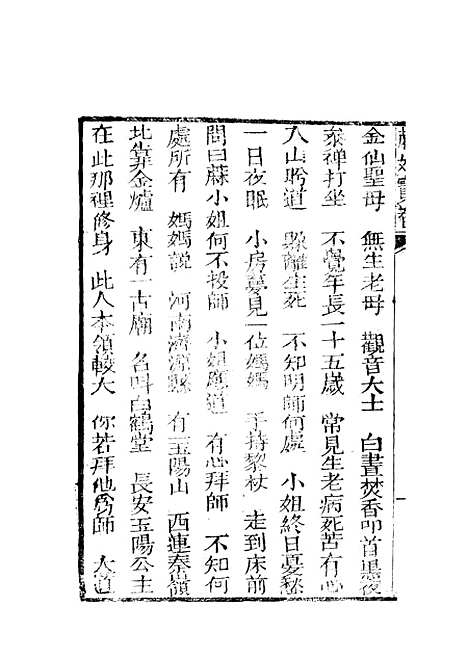 金仙聖母 無生老母 觀音大士 白晝焚香叩首黑夜
叅禪打坐 不覺年長一十五歲 常見生老病死苦有心
入山聆道 躱離生死 不知明師何處 小姐終日憂愁
一日夜眠 小房夢見一位媽媽 手持藜杖 走到床前
問曰蘇小姐何不投師 小姐應道 有心拜師 不知何
處所有 媽媽説 河南濟源縣 有一玉陽山 西連秦嶺
北靠金爐 東有一古廟 名叫白鶴堂 長安玉陽公主
在此那裡修身 此人本領較大 你若拜他爲師 大道